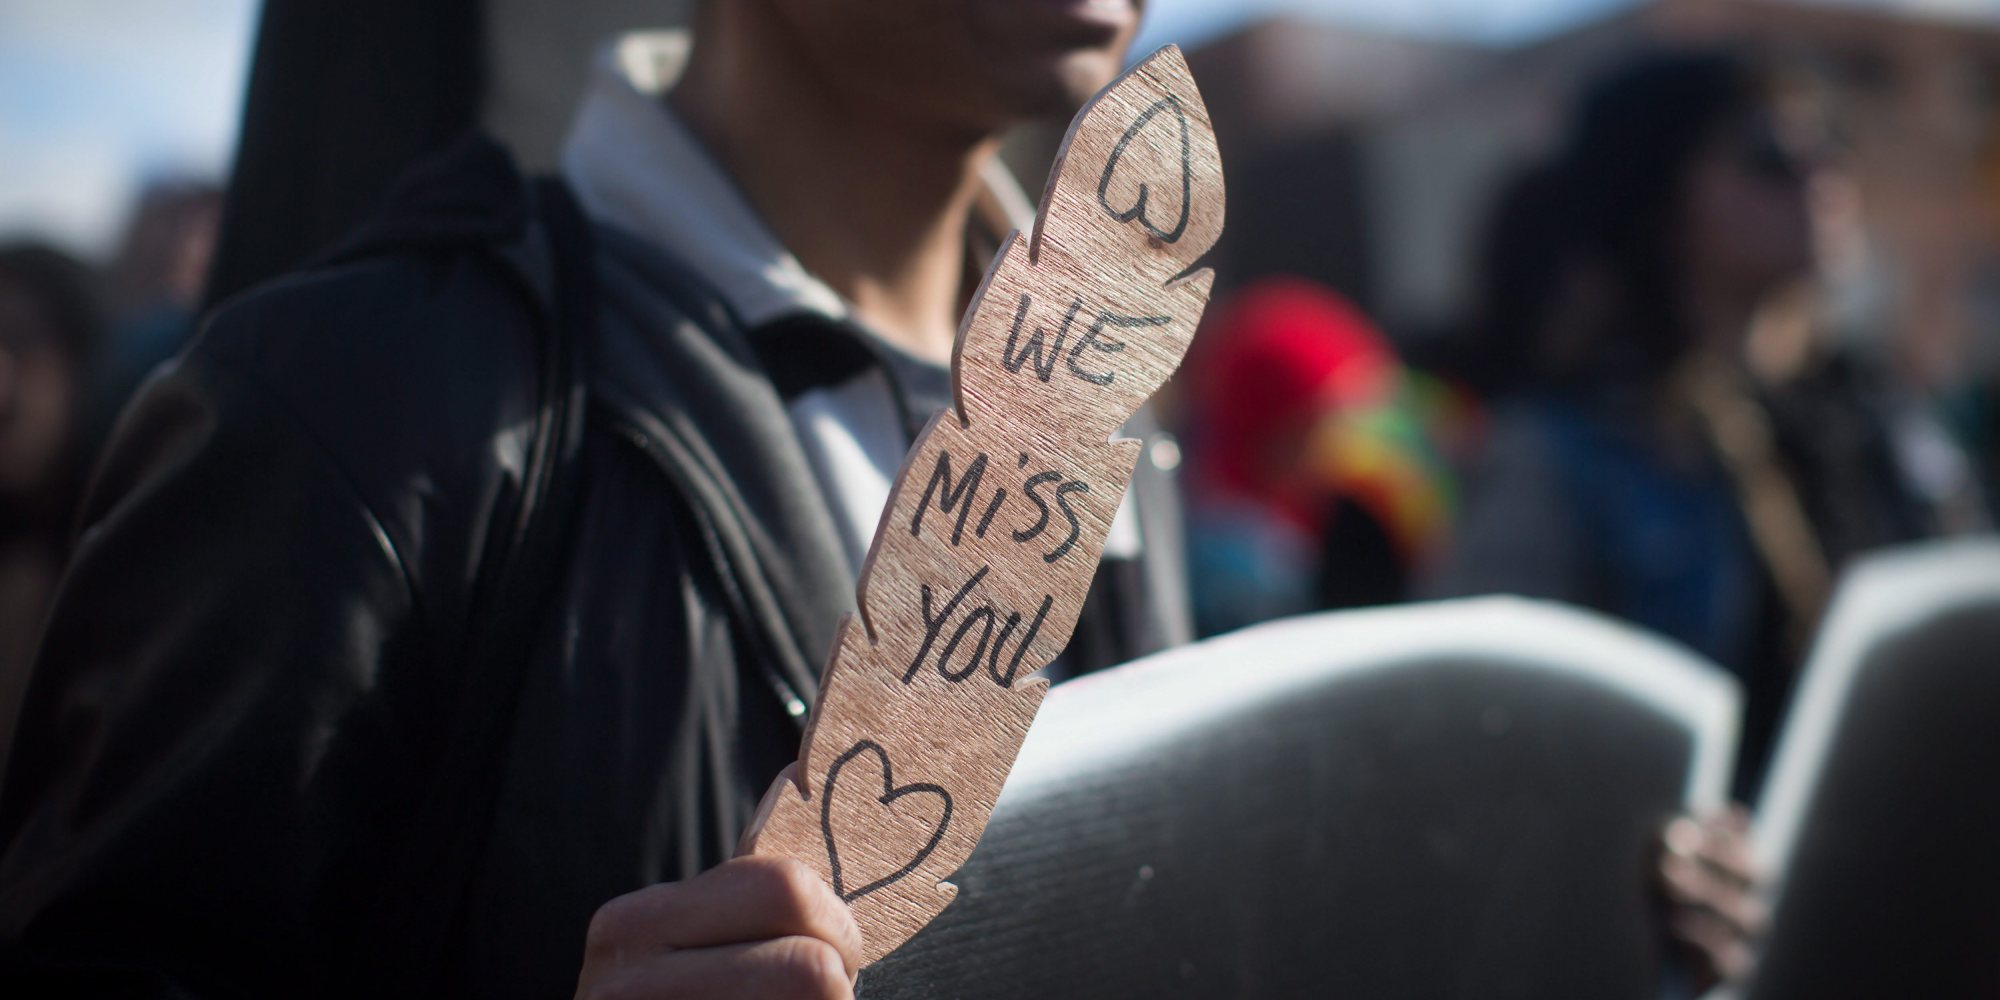 WE
MiSS
YOU